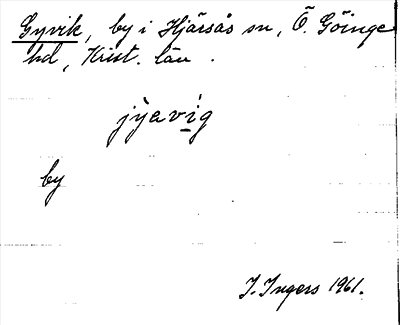 Gyvik, by i Hjärsås sn, Ö. Göinge
hd, Krist. län.
jỳavi̲g
by
I. Ingers 1961.